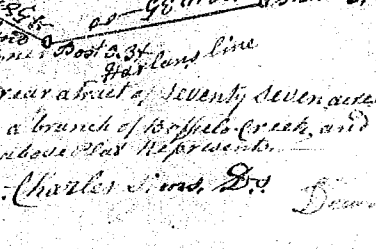 Post 3.34
Harlans line
a tract of Seventy Seven acres
a branch of Buffelo Creek, and
above Plat Represents.
Charles Sims. D.S